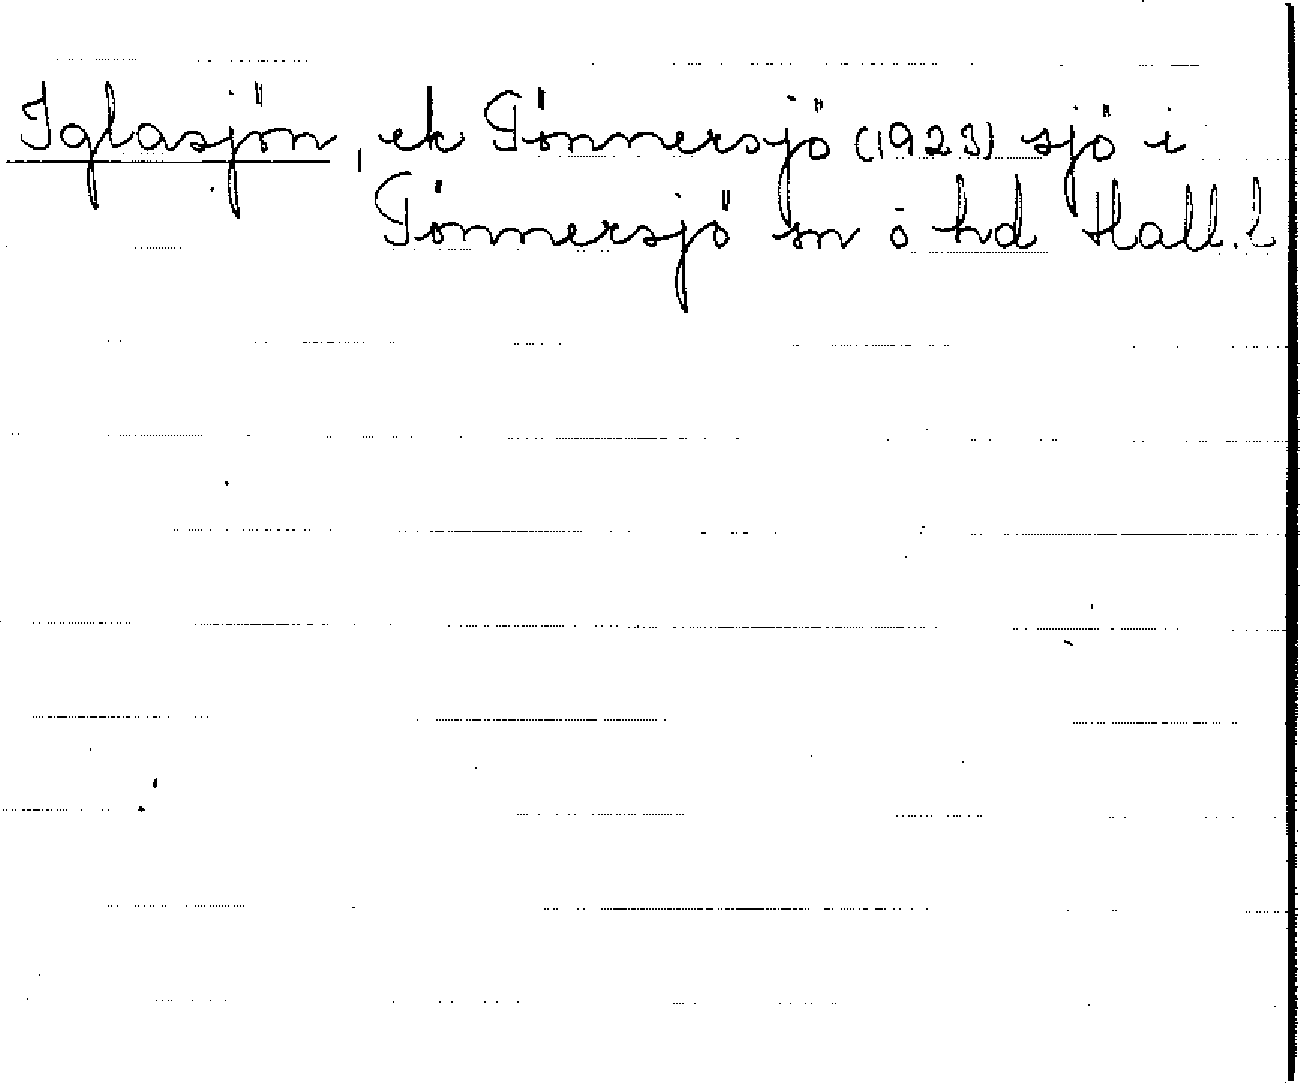 Iglasjön, ek Tönnersjö (1923) sjö i
Tönnersjö sn o hd Hall. l